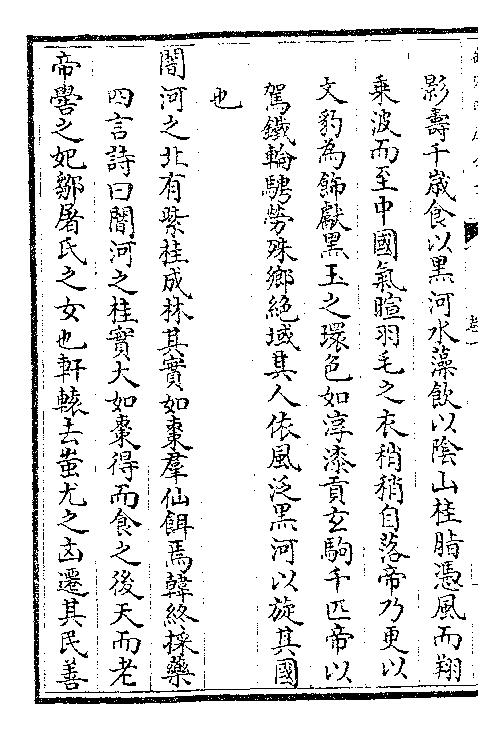 影壽千歲食以黑河水藻飲以陰山桂脂憑風而翔
乘波而至中國氣暄羽毛之衣稍稍自落帝乃更以
文豹為飾獻黑玉之環色如淳漆貢玄駒千匹帝以
駕鐵輪騁勞殊鄉絕域其人依風泛黑河以旋其國
也
闇河之北有紫桂成林其實如棗羣仙餌焉韓終採藥
四言詩曰闇河之桂實大如棗得而食之後天而老
帝嚳之妃鄒屠氏之女也軒轅去蚩尤之凶遷其民善